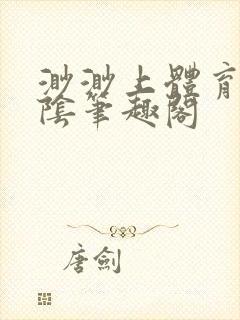 渺渺上體育
陰筆趣閣
唐劍